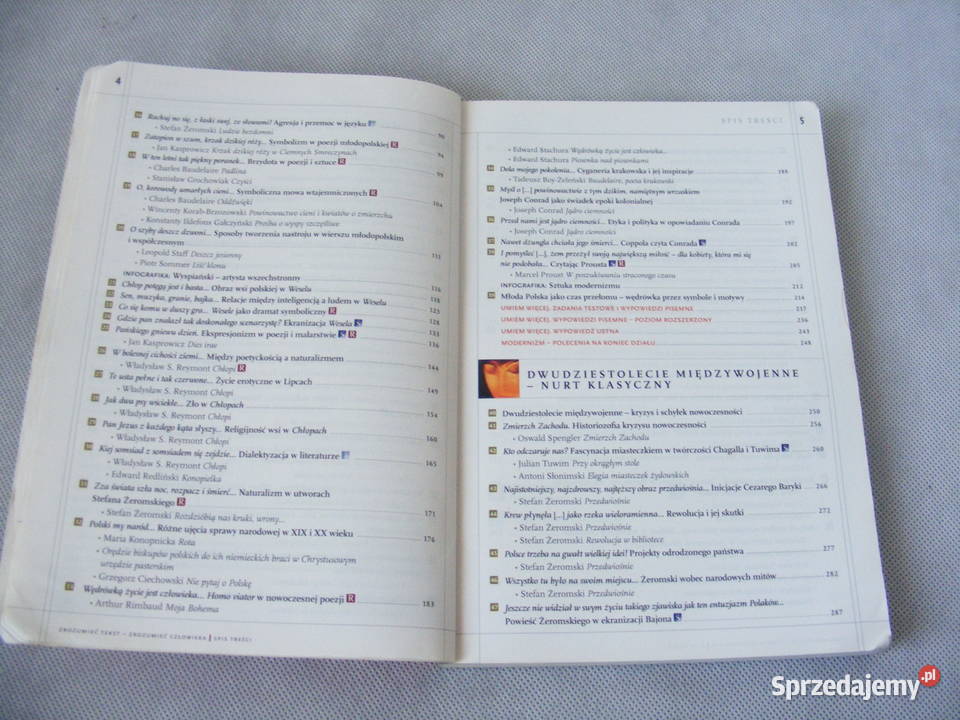 4
16 Rachuj no się, z łaski swej, ze słowami! Agresja i przemoc w języku
• Stefan Żeromski Ludzie bezdomni 90
17 Zatopion w szum, krzak dzikiej róży... Symbolizm w poezji młodopolskiej R
• Jan Kasprowicz Krzak dzikiej róży w Ciemnych Smreczynach 94
18 W ten letni tak piękny poranek... Brzydota w poezji i sztuce R
• Charles Baudelaire Padlina 99
• Stanisław Grochowiak Czyści
19 O, korowody umarłych cieni... Symboliczna mowa wtajemniczonych R
• Charles Baudelaire Oddźwięki 104
• Wincenty Korab-Brzozowski Powinowactwo cieni i kwiatów o zmierzchu
• Konstanty Ildefons Gałczyński Prośba o wyspy szczęśliwe
20 O szyby deszcz dzwoni... Sposoby tworzenia nastroju w wierszu młodopolskim
i współczesnym
• Leopold Staff Deszcz jesienny 111
• Piotr Sommer Liść klonu
INFOGRAFIKA: Wyspiański – artysta wszechstronny
21 Chłop potęgą jest i basta... Obraz wsi polskiej w Weselu 116
22 Sen, muzyka, granie, bajka... Relacje między inteligencją a ludem w Weselu 118
23 Co się komu w duszy gra... Wesele jako dramat symboliczny R 123
24 Gdzie pan znalazł tak doskonałego scenarzystę? Ekranizacja Wesela S 128
25 Pańskiego gniewu dzień. Ekspresjonizm w poezji i malarstwie S R 133
• Jan Kasprowicz Dies irae 136
26 W bolesnej cichości ziemi... Między poetyckością a naturalizmem
• Władysław S. Reymont Chłopi R 144
27 Te usta pełne i tak czerwone... Życie erotyczne w Lipcach
• Władysław S. Reymont Chłopi 149
28 Jak dwa psy wściekłe... Zło w Chłopach
• Władysław S. Reymont Chłopi 154
29 Pan Jezus z każdego kąta słyszy... Religijność wsi w Chłopach 160
• Władysław S. Reymont Chłopi
30 Kiej somsiad z somsiadem się zejdzie... Dialektyzacja w literaturze 165
• Władysław S. Reymont Chłopi
• Edward Redliński Konopielka
31 Zza świata szła noc, rozpacz i śmierć... Naturalizm w utworach
Stefana Żeromskiego R 171
• Stefan Żeromski Rozdzióbią nas kruki, wrony...
32 Polski my naród... Różne ujęcia sprawy narodowej w XIX i XX wieku 176
• Maria Konopnicka Rota
• Orędzie biskupów polskich do ich niemieckich braci w Chrystusowym
urzędzie pasterskim
• Grzegorz Ciechowski Nie pytaj o Polskę
33 Wędrówką życie jest człowieka... Homo viator w nowoczesnej poezji R 183
• Arthur Rimbaud Moja Bohema
ZROZUMIEĆ TEKST – ZROZUMIEĆ CZŁOWIEKA | SPIS TREŚCI
SPIS TREŚCI 5
• Edward Stachura Wędrówką życie jest człowieka...
• Edward Stachura Piosenka nad piosenkami
34 Dola mojego pokolenia... Cyganeria krakowska i jej inspiracje 188
• Tadeusz Boy-Żeleński Baudelaire, poeta krakowski
35 Myśl o [...] powinowactwie z tym dzikim, namiętnym wrzaskiem
Joseph Conrad jako świadek epoki kolonialnej 192
• Joseph Conrad Jądro ciemności
36 Przed nami jest jądro ciemności... Etyka i polityka w opowiadaniu Conrada 197
• Joseph Conrad Jądro ciemności
37 Nawet dżungla chciała jego śmierci... Coppola czyta Conrada S 202
38 I pomyśleć [...], żem przeżył swoją największą miłość – dla kobiety, która mi się
nie podobała... Czytając Prousta S R 205
• Marcel Proust W poszukiwaniu straconego czasu
INFOGRAFIKA: Sztuka modernizmu 212
39 Młoda Polska jako czas przełomu – wędrówka przez symbole i motywy 214
UMIEM WIĘCEJ. ZADANIA TESTOWE I WYPOWIEDZI PISEMNE 217
UMIEM WIĘCEJ. WYPOWIEDZI PISEMNE – POZIOM ROZSZERZONY 236
UMIEM WIĘCEJ. WYPOWIEDŹ USTNA 243
MODERNIZM – POLECENIA NA KONIEC DZIAŁU 248
DWUDZIESTOLECIE MIĘDZYWOJENNE
– NURT KLASYCZNY
40 Dwudziestolecie międzywojenne – kryzys i schyłek nowoczesności 250
41 Zmierzch Zachodu. Historiozofia kryzysu nowoczesności 256
• Oswald Spengler Zmierzch Zachodu
42 Kto odczaruje nas? Fascynacja miasteczkiem w twórczości Chagalla i Tuwima S 260
• Julian Tuwim Przy okrągłym stole
• Antoni Słonimski Elegia miasteczek żydowskich
43 Najistotniejszy, najzdrowszy, najtęższy obraz przedwiośnia... Inicjacje Cezarego Baryki 266
• Stefan Żeromski Przedwiośnie
44 Krew płynęła [...] jako rzeka wieloramienna... Rewolucja i jej skutki 272
• Stefan Żeromski Przedwiośnie
• Stefan Żeromski Rewolucja w bibliotece
45 Polsce trzeba na gwałt wielkiej idei! Projekty odrodzonego państwa 277
• Stefan Żeromski Przedwiośnie
46 Wszystko tu było na swoim miejscu... Żeromski wobec narodowych mitów 282
• Stefan Żeromski Przedwiośnie
47 Jeszcze nie widział w swym życiu takiego zjawiska jak ten entuzjazm Polaków...
Powieść Żeromskiego w ekranizacji Bajona S 287
Sprzedajemy.pl